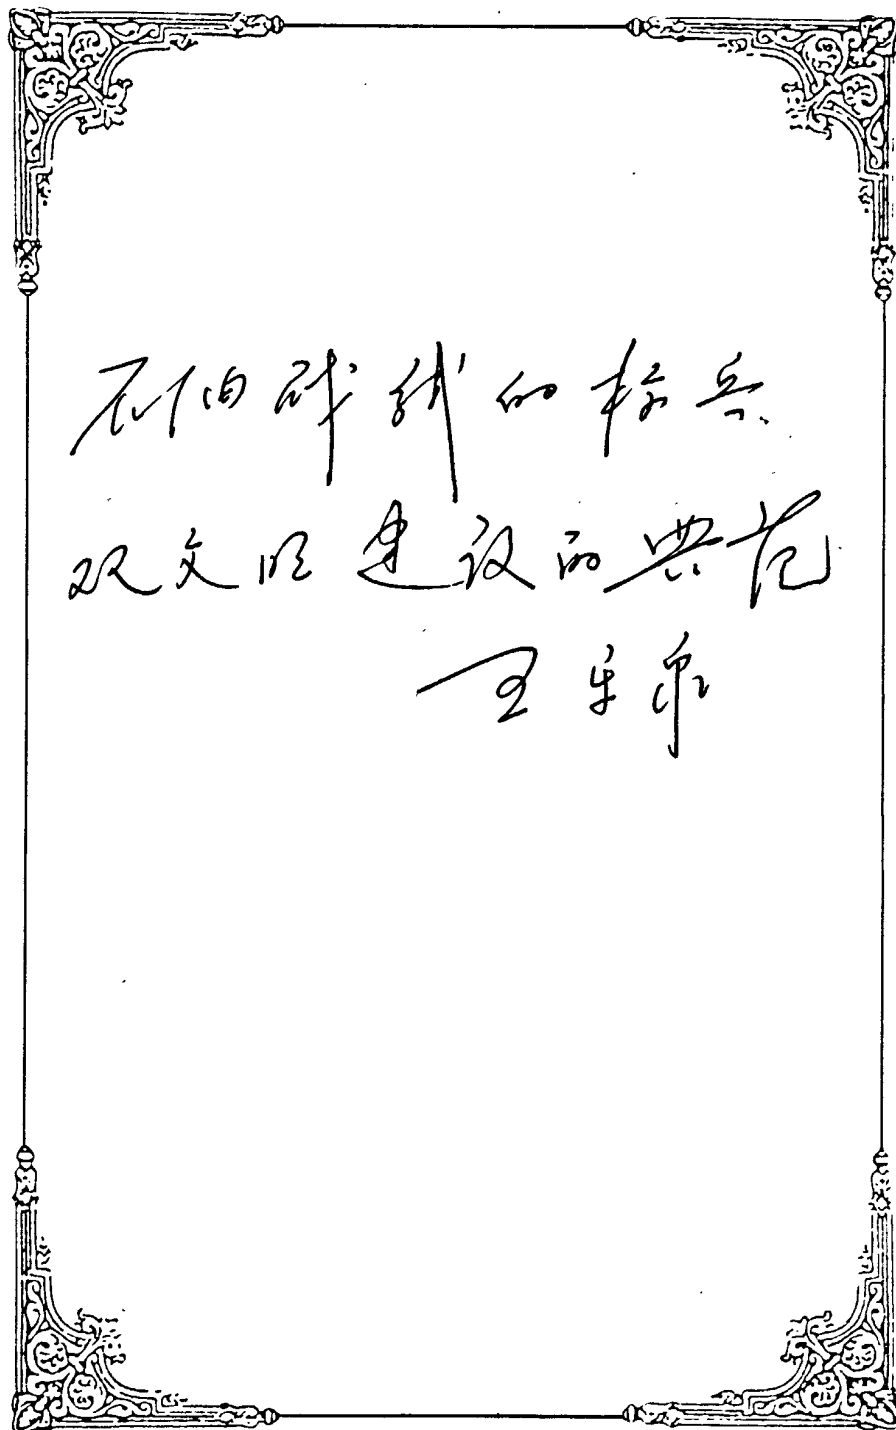 石油战线的标兵
双文明建设的典范
王乐泉